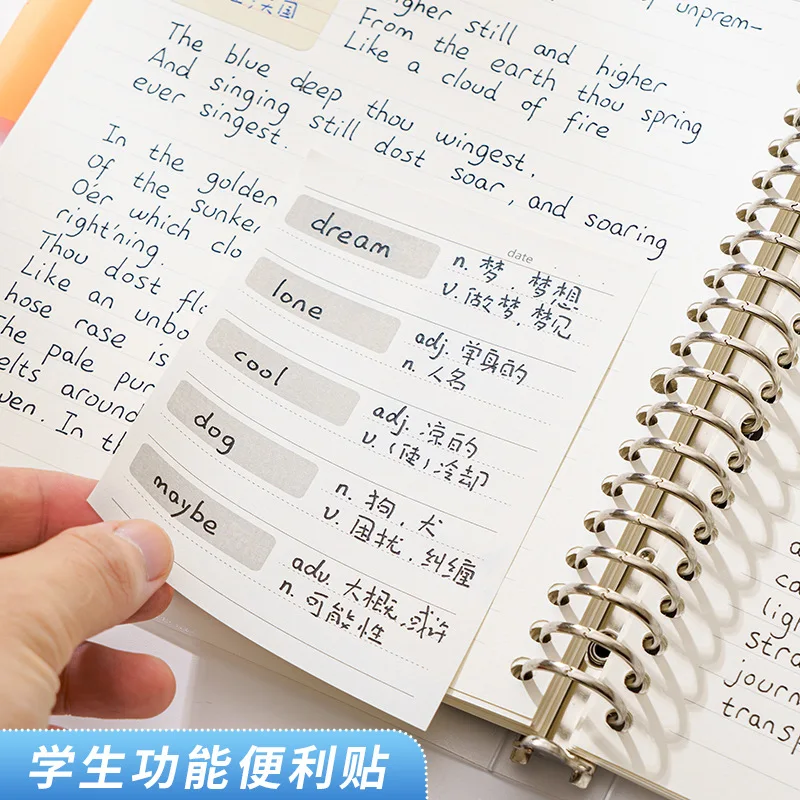 unprem-
higher still and higher
From the earth thou spring
Like a cloud of fire
The blue deep thou wingest.
And singing still dost soar, and soaring
ever singest.
In the golden
Of the sunken
O'er which clo
right'ning.
Thou dost flo
Like an unbo
hose rase is
The pale pur
elts around
ven. In th
date
dream
n. 梦, 梦想
v. 做梦, 梦见
lone
adj. 学身的
n. 人名
cool
adj. 凉的
v. (使)冷却
dog
n. 狗, 犬
v. 困扰, 纠缠
maybe
adv. 大概, 或许
n. 可能性
ligh
stra
journ
transp
学生功能便利贴